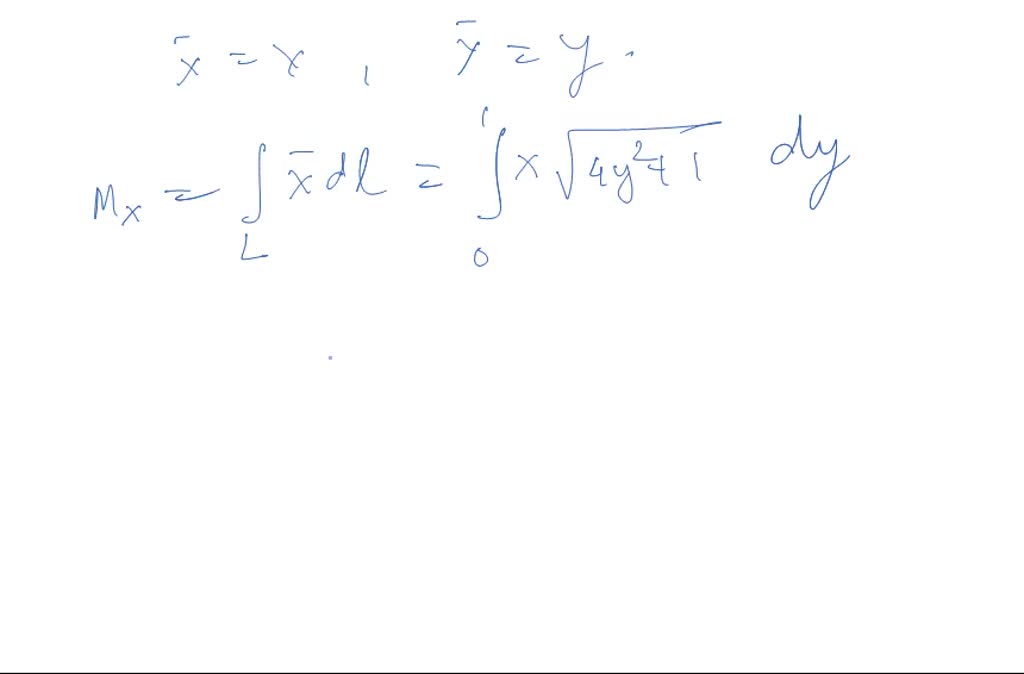 x̄ = x , ȳ = y .
Mx = ∫L x̄ dl = ∫₀¹ x √(4y²+1) dy